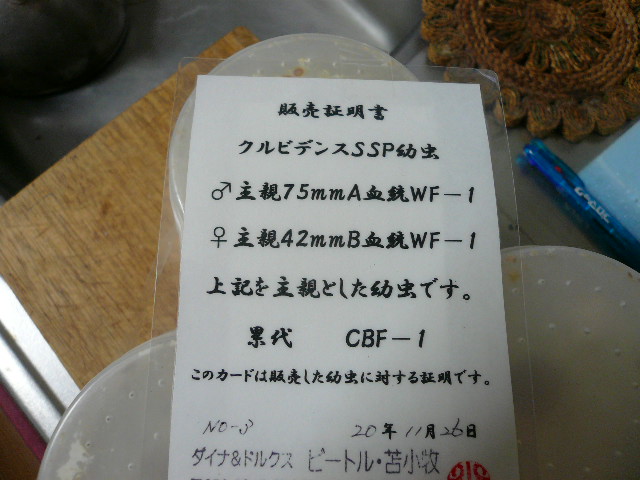 販売証明書
クルビデンスSSP幼虫
♂主親75mmA血統WF－1
♀主親42mmB血統WF－1
上記を主親とした幼虫です。
累代 CBF－1
このカードは販売した幼虫に対する証明です。
NO-3 20年11月26日
ダイナ&ドルクス ビートル・苫小牧